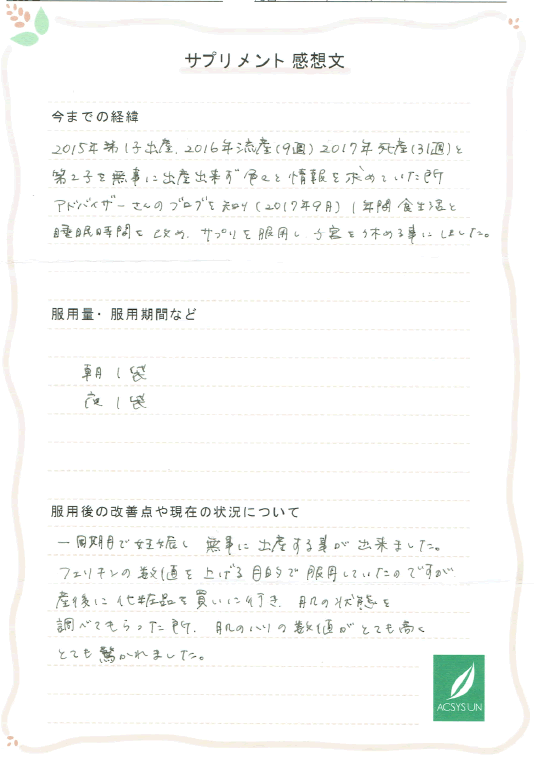 サプリメント 感想文
今までの経緯
2015年第1子出産、2016年流産(9週) 2017年死産(31週)と
第2子を無事に出産出来ず色々と情報を求めていた所
アドバイザーさんのブログを知り(2017年9月) 1年間食生活と
睡眠時間を改め、サプリを服用し 子宮を休める事にしました。
服用量・服用期間など
朝 1袋
夜 1袋
服用後の改善点や現在の状況について
一周期目で妊娠し 無事に出産する事が出来ました。
フェリチンの数値を上げる目的で服用していたのですが
産後に化粧品を買いに行き、肌の状態を
調べてもらった所、肌のハリの数値がとても高く
とても驚かれました。
ACSYSUN